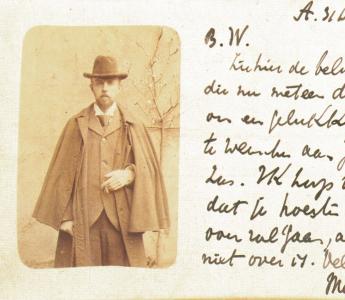 A. 31 D
B. W.
Ziehier de bel
die nu meteen d
om en geluk
te wenschen aan J
Zus. Ik hoop
dat je hoest
over zal gaan, a
niet over is. Vel
M